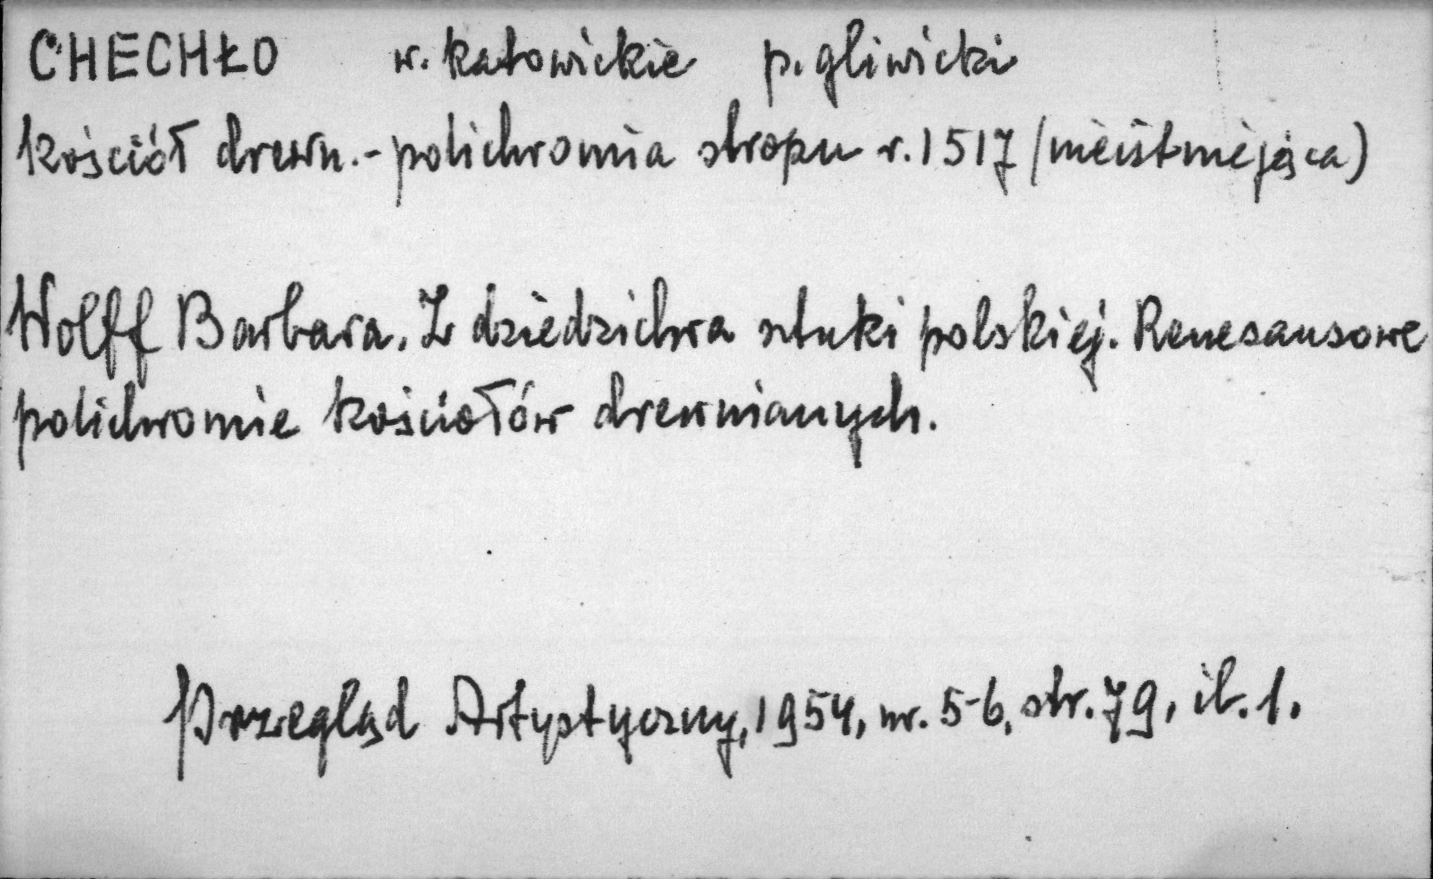 CHECHŁO w. katowickie p. gliwicki
Kościół drewn. - polichromia stropu r. 1517 (nieistniejąca)
Wolff Barbara. Z dziedzictwa sztuki polskiej. Renesansowe
polichromie kościołów drewnianych.
Przegląd Artystyczny, 1954, nr. 5-6, str. 79, il. 1.